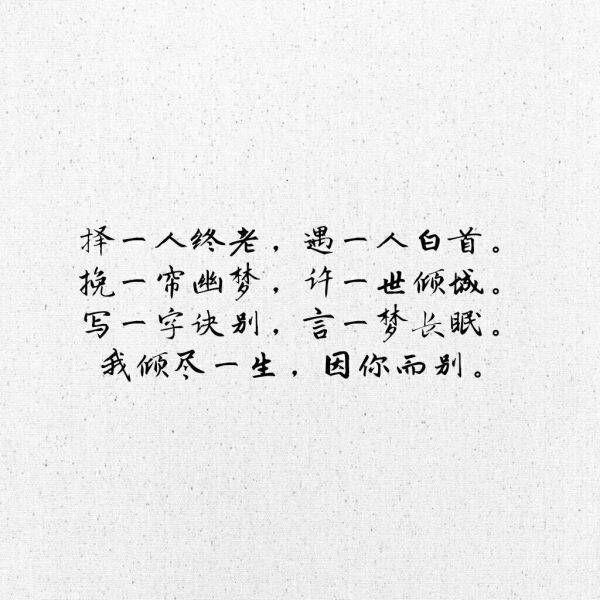 择一人终老，遇一人白首。
挽一帘幽梦，许一世倾城。
写一字诀别，言一梦长眠。
我倾尽一生，因你而别。